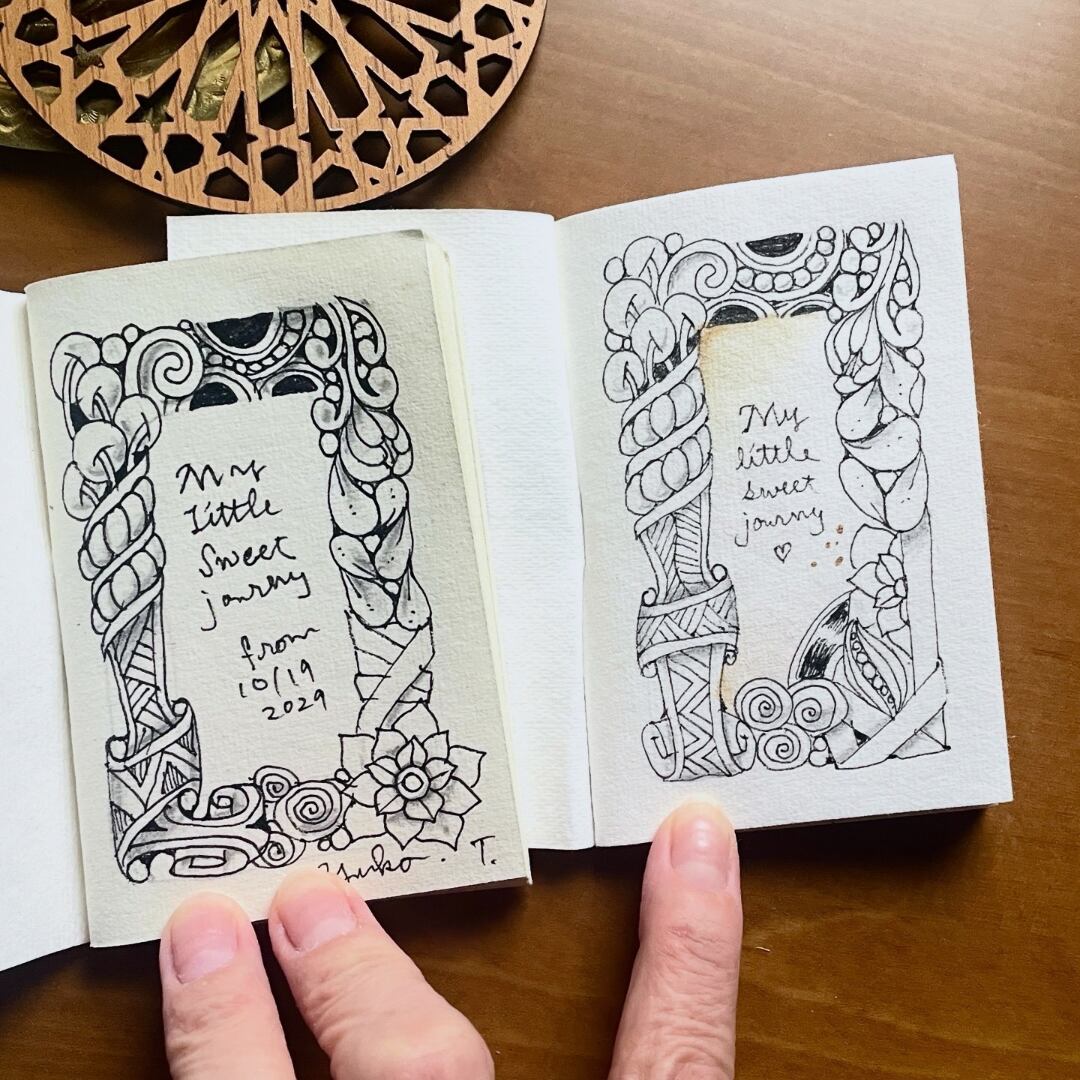 My
Little
Sweet
journy
from
10/19
2029
Yuko. T.
My
little
sweet
journy
♡